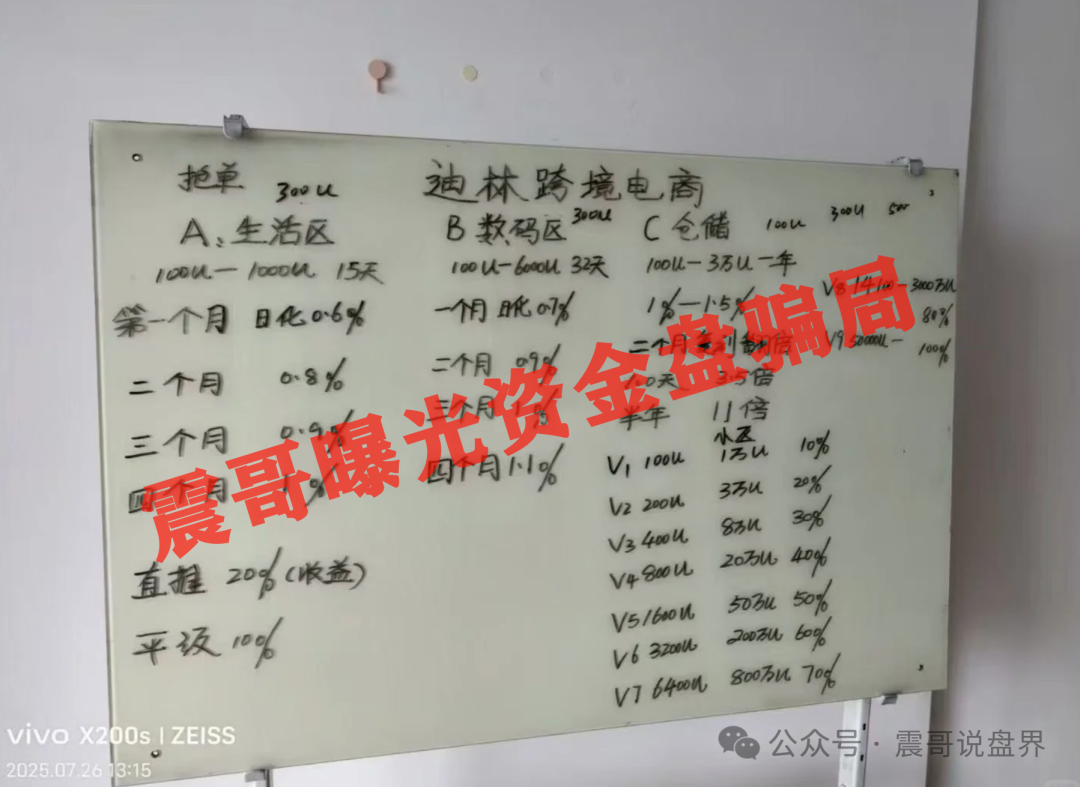 抢单 300U 迪林跨境电商
A、生活区 B 数码区 300U C 仓储 100U 300U 500
100U一1000U 15天 100U一6000U 32天 100U一3万U一年
第一个月 日化0.6% 一个月 日化0.7% 1%一1.5% V8 14100一3000万U 80%
二个月 0.8% 二个月 0.9% 二个月 翻倍 V9 50000U一 100%
三个月 0.9% 三个月 3.5倍
四个月 四个月 1.1% 半年 11倍
小区
V1 100U 1万U 10%
V2 200U 3万U 20%
V3 400U 8万U 30%
V4 800U 20万U 40%
V5 1600U 50万U 50%
V6 3200U 200万U 60%
V7 6400U 800万U 70%
直推 20%(收益)
平级 10%
震哥曝光资金盘骗局
vivo X200s | ZEISS
2025.07.26 13:15
公众号 · 震哥说盘界